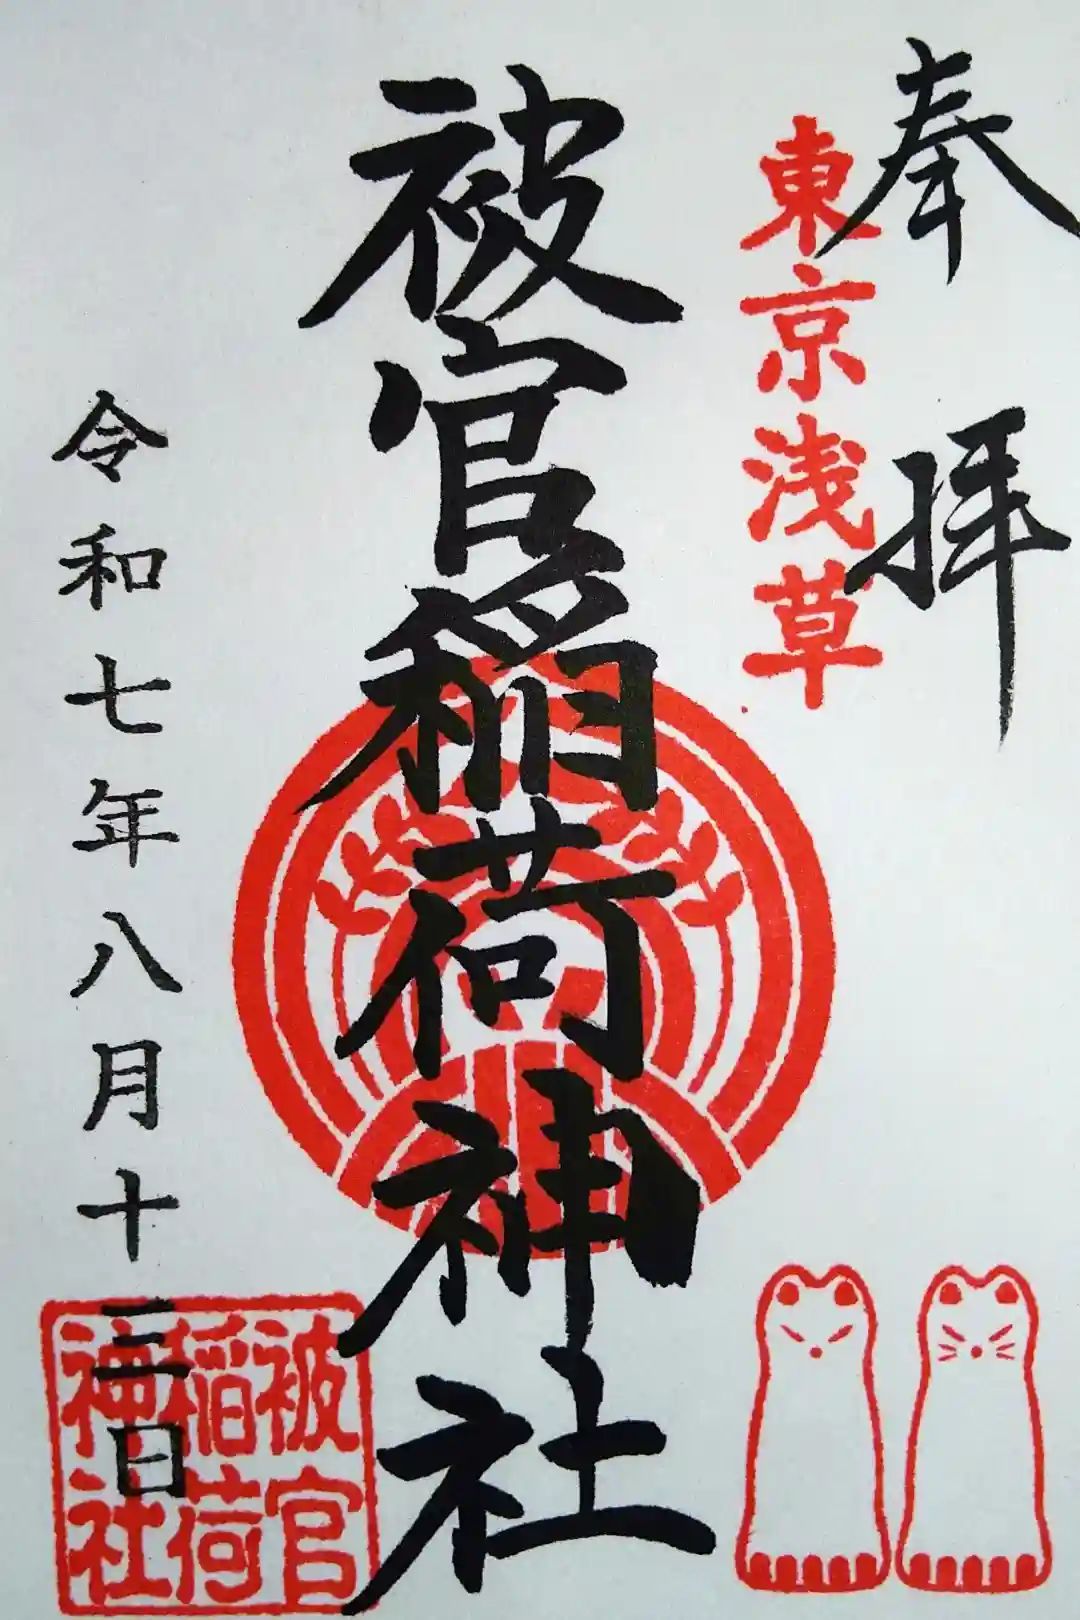 奉拝
東京浅草
被官稲荷神社
令和七年八月十三日
被官
稲荷
神社